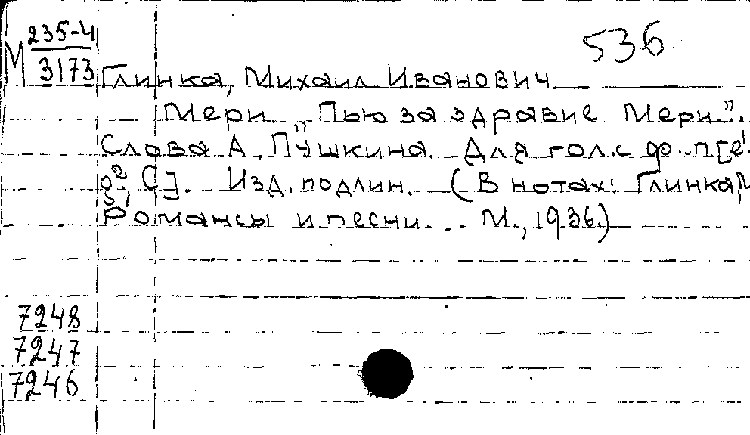 536
М 235-4
3173
Глинка, Михаил Иванович
Мери „Пью за здравие Мери".
Слова А. Пушкина. Для гол. с ф-п [e¹
g², C]. Изд. подлин. (В нотах: Глинка, М
Романсы и песни... М., 1936.)
7248
7247
7246